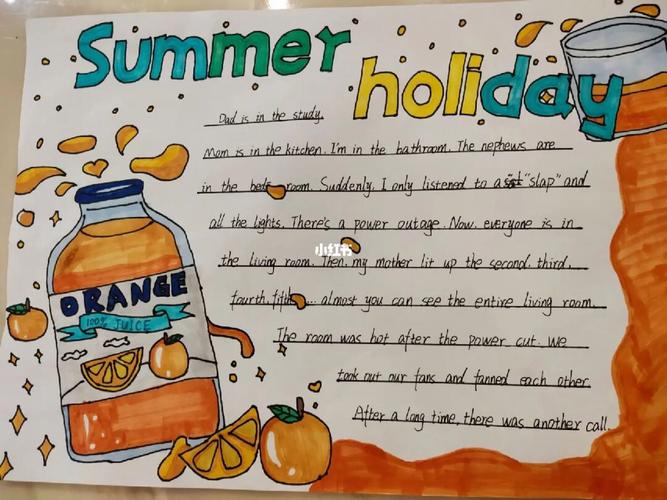 Summer
holiday
Dad is in the study.
Mom is in the kitchen. I'm in the bathroom. The nephews are
in the bedroom. Suddenly, I only listened to a "slap" and
all the lights. There's a power outage. Now, everyone is in
the living room. Then, my mother lit up the second, third,
fourth, fifth... almost you can see the entire living room.
The room was hot after the power cut. We
took out our fans and fanned each other
After a long time, there was another call.
ORANGE
100% JUICE
小红书